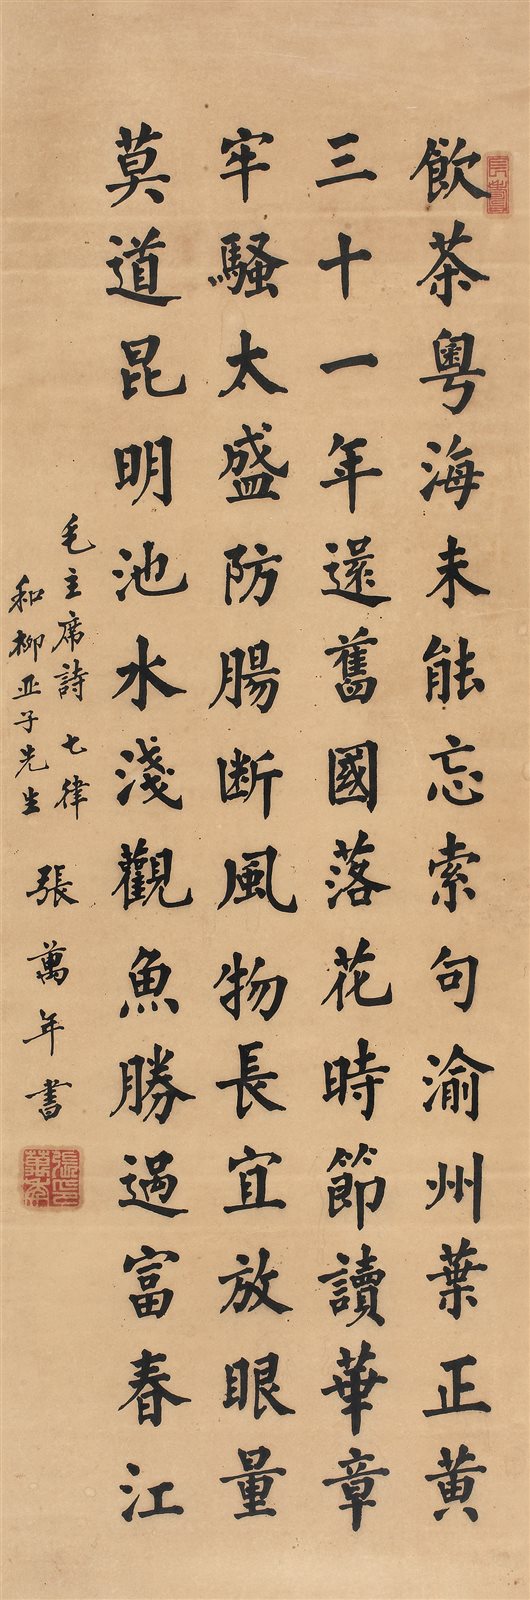 飲茶粵海未能忘索句渝州葉正黃
三十一年還舊國落花時節讀華章
牢騷太盛防腸断風物長宜放眼量
莫道昆明池水淺觀魚勝過富春江
毛主席詩七律
和柳亚子先生
張萬年書
張萬年印